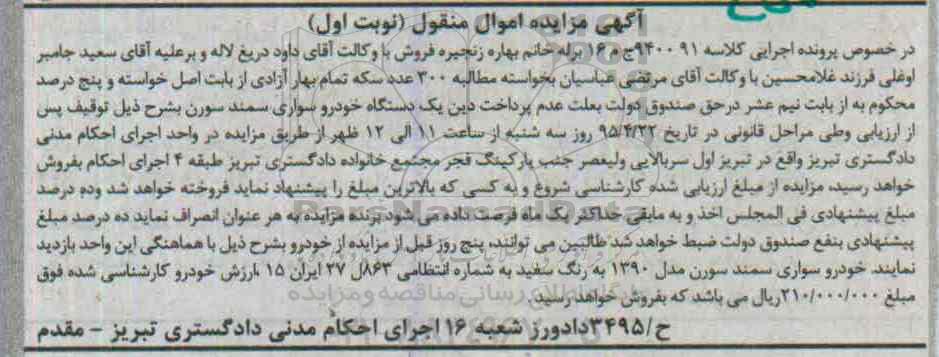 آگهی مزایده اموال منقول (نوبت اول)
در خصوص پرونده اجرایی کلاسه ۹۱ ۹۴۰۰ج م ۱۶ برله خانم بهاره زنجیره فروش با وکالت آقای داود دریغ لاله و برعلیه آقای سعید جامبر
اوغلی فرزند غلامحسین با وکالت آقای مرتضی عباسیان بخواسته مطالبه ۳۰۰ عدد سکه تمام بهار آزادی از بابت اصل خواسته و پنج درصد
محکوم به از بابت نیم عشر درحق صندوق دولت بعلت عدم پرداخت دین یک دستگاه خودرو سواری سمند سورن بشرح ذیل توقیف پس
از ارزیابی وطی مراحل قانونی در تاریخ ۹۵/۴/۲۲ روز سه شنبه از ساعت ۱۱ الی ۱۲ ظهر از طریق مزایده در واحد اجرای احکام مدنی
دادگستری تبریز واقع در تبریز اول سربالایی ولیعصر جنب پارکینگ فجر مجتمع خانواده دادگستری تبریز طبقه ۴ اجرای احکام بفروش
خواهد رسید، مزایده از مبلغ ارزیابی شده کارشناسی شروع و به کسی که بالاترین مبلغ را پیشنهاد نماید فروخته خواهد شد وده درصد
مبلغ پیشنهادی فی المجلس اخذ و به مابقی حداکثر یک ماه فرصت داده می شود برنده مزایده به هر عنوان انصراف نماید ده درصد مبلغ
پیشنهادی بنفع صندوق دولت ضبط خواهد شد طالبین می توانند، پنج روز قبل از مزایده از خودرو بشرح ذیل با هماهنگی این واحد بازدید
نمایند. خودرو سواری سمند سورن مدل ۱۳۹۰ به رنگ سفید به شماره انتظامی ۸۶۳ل ۲۷ ایران ۱۵ ،ارزش خودرو کارشناسی شده فوق
مبلغ ۲۱۰/۰۰۰/۰۰۰ریال می باشد که بفروش خواهد رسید.
ح/۳۴۹۵دادورز شعبه ۱۶ اجرای احکام مدنی دادگستری تبریز - مقدم